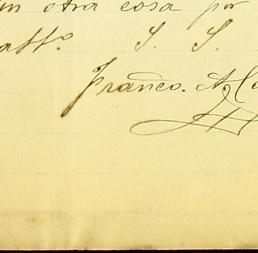 otra cosa por
affº. S. S.
Franco. A.